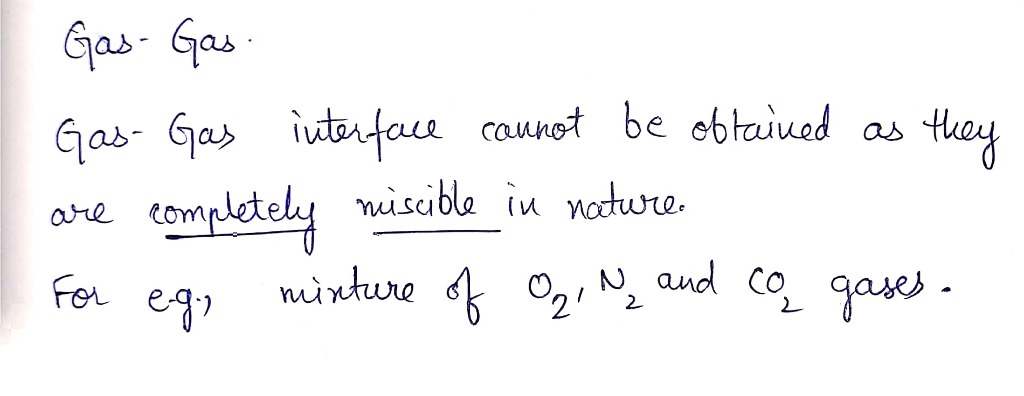 Gas- Gas.
Gas- Gas interface cannot be obtained as they
are completely miscible in nature.
For e.g., mixture of O₂, N₂ and CO₂ gases.